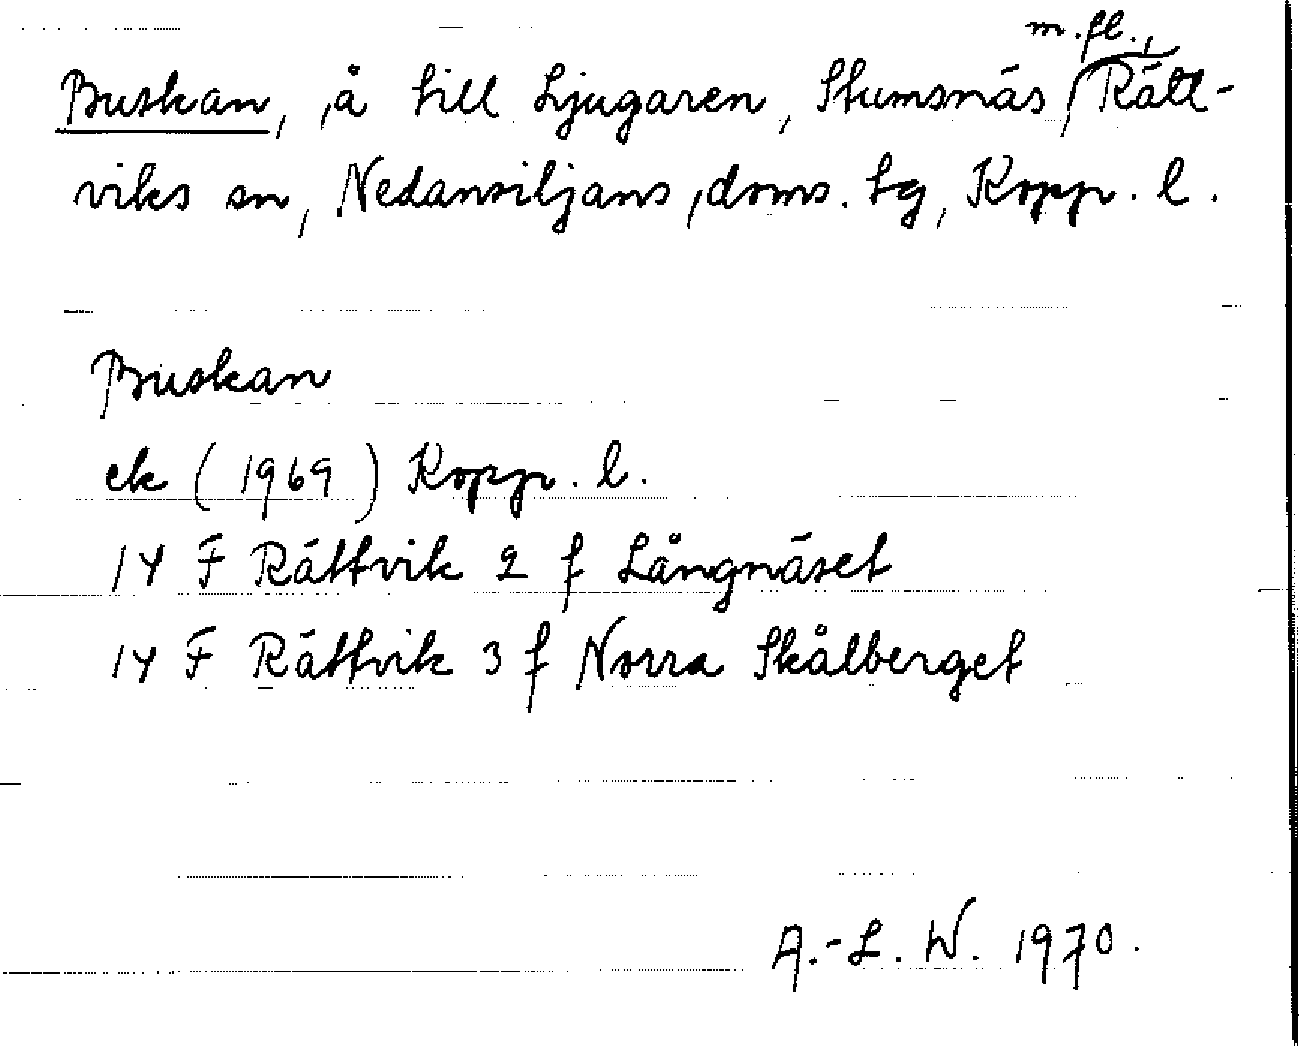 Buskan, å till Ljugaren, Stumsnäs m.fl., Rätt-
viks sn, Nedansiljans doms. tg, Kopp. l.
Buskan
ek (1969) Kopp. l.
14 F Rättvik 2 f Långnäset
14 F Rättvik 3 f Norra Skålberget
A.-L. W. 1970.